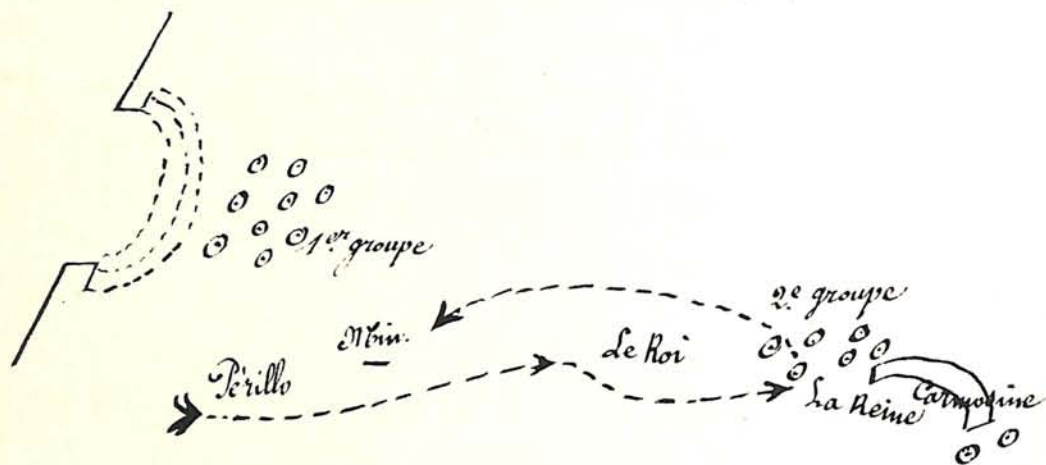 1er groupe
2e groupe
Min.
Le Roi
Périllo
La Reine
Carmosine